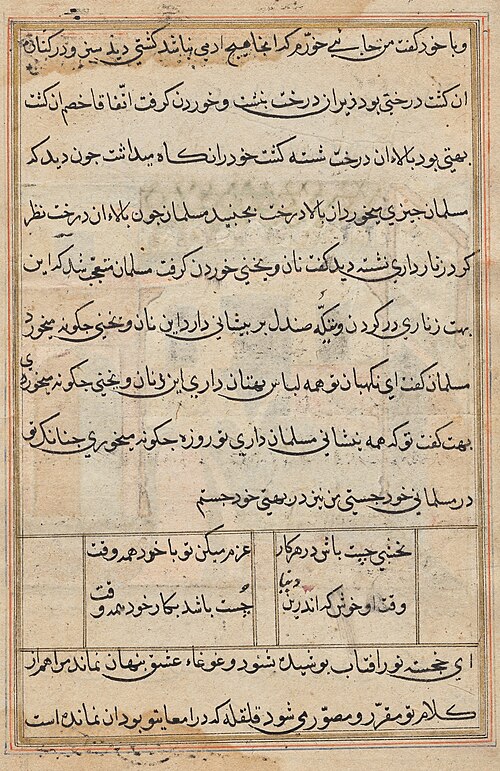 و با خود گفت من جایی خورم که آنجا هیچ آدمی نباشد کشتی دید سبز و در کنار
آن کشت درختی بود زیر آن درخت بنشست و خوردن گرفت اتفاقا خصم آن کشت
بهتی بود بالاء آن درخت نشسته کشت خود را نگاه میداشت چون دید که
مسلمان چیزی میخورد از بالا درخت بجنبید مسلمان چون بالاء آن درخت نظر
کرد زنارداری نشسته دید گفت نان و یخنی خوردن گرفت مسلمان متعجب شد که این
بهت زناری در گردن و تیکه صندل بر پیشانی دارد این نان و یخنی چکونه میخورد
مسلمان گفت ای نگهبان تو همه لباس بهتان داری این نان و یخنی چکونه میخوری
بهت گفت تو که همه پیشانی مسلمان داری تو روزه چکونه میخوری چنانک تو
در مسلمانی خود چستی من نیز در بهتی خود چستم
نخشبی چست باش در هر کار
عزم میکن تو با خود همه وقت
وقت او خوش که اندرین دنیا
چست باشد بکار خود همه وقت
ای خجسته نور آفتاب پوشیده بشود و غوغاء عشق پنهان نماند مرا هم از
کلام تو مقرر و مصور می شود قلقله که در امعا تو بود آن نمانده است